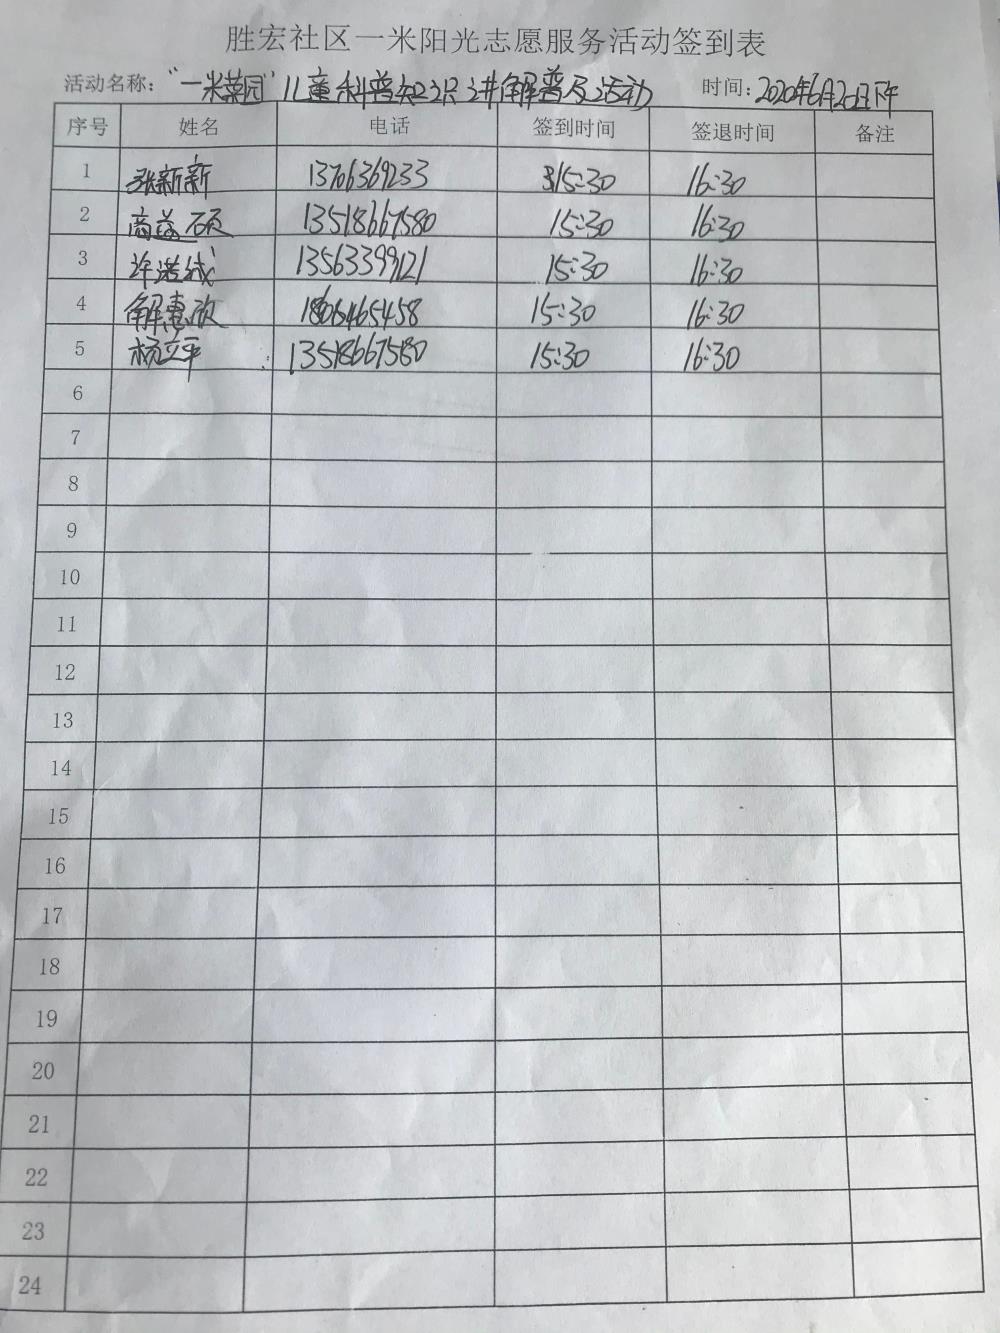 胜宏社区一米阳光志愿服务活动签到表
活动名称：“一米菜园”儿童科普知识讲解普及活动 时间：2020年6月20日下午
序号 姓名 电话 签到时间 签退时间 备注
1 张新新 13706369233 15:30 16:30
2 商益硕 13518667580 15:30 16:30
3 许诺诚 13563399121 15:30 16:30
4 解惠欣 15:30 16:30
5 杨立平 13518667580 15:30 16:30
6
7
8
9
10
11
12
13
14
15
16
17
18
19
20
21
22
23
24